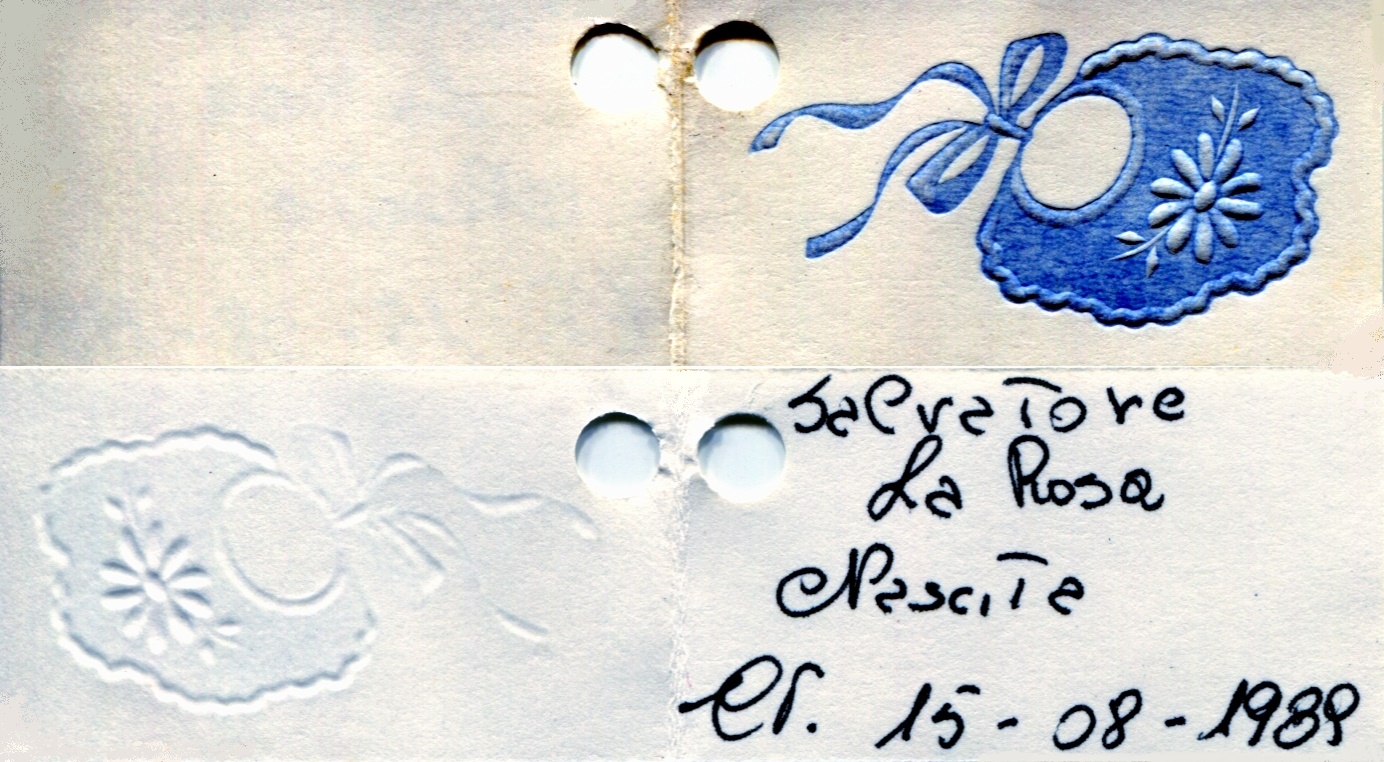 Salvatore
La Rosa
Nascita
N. 15-08-1989